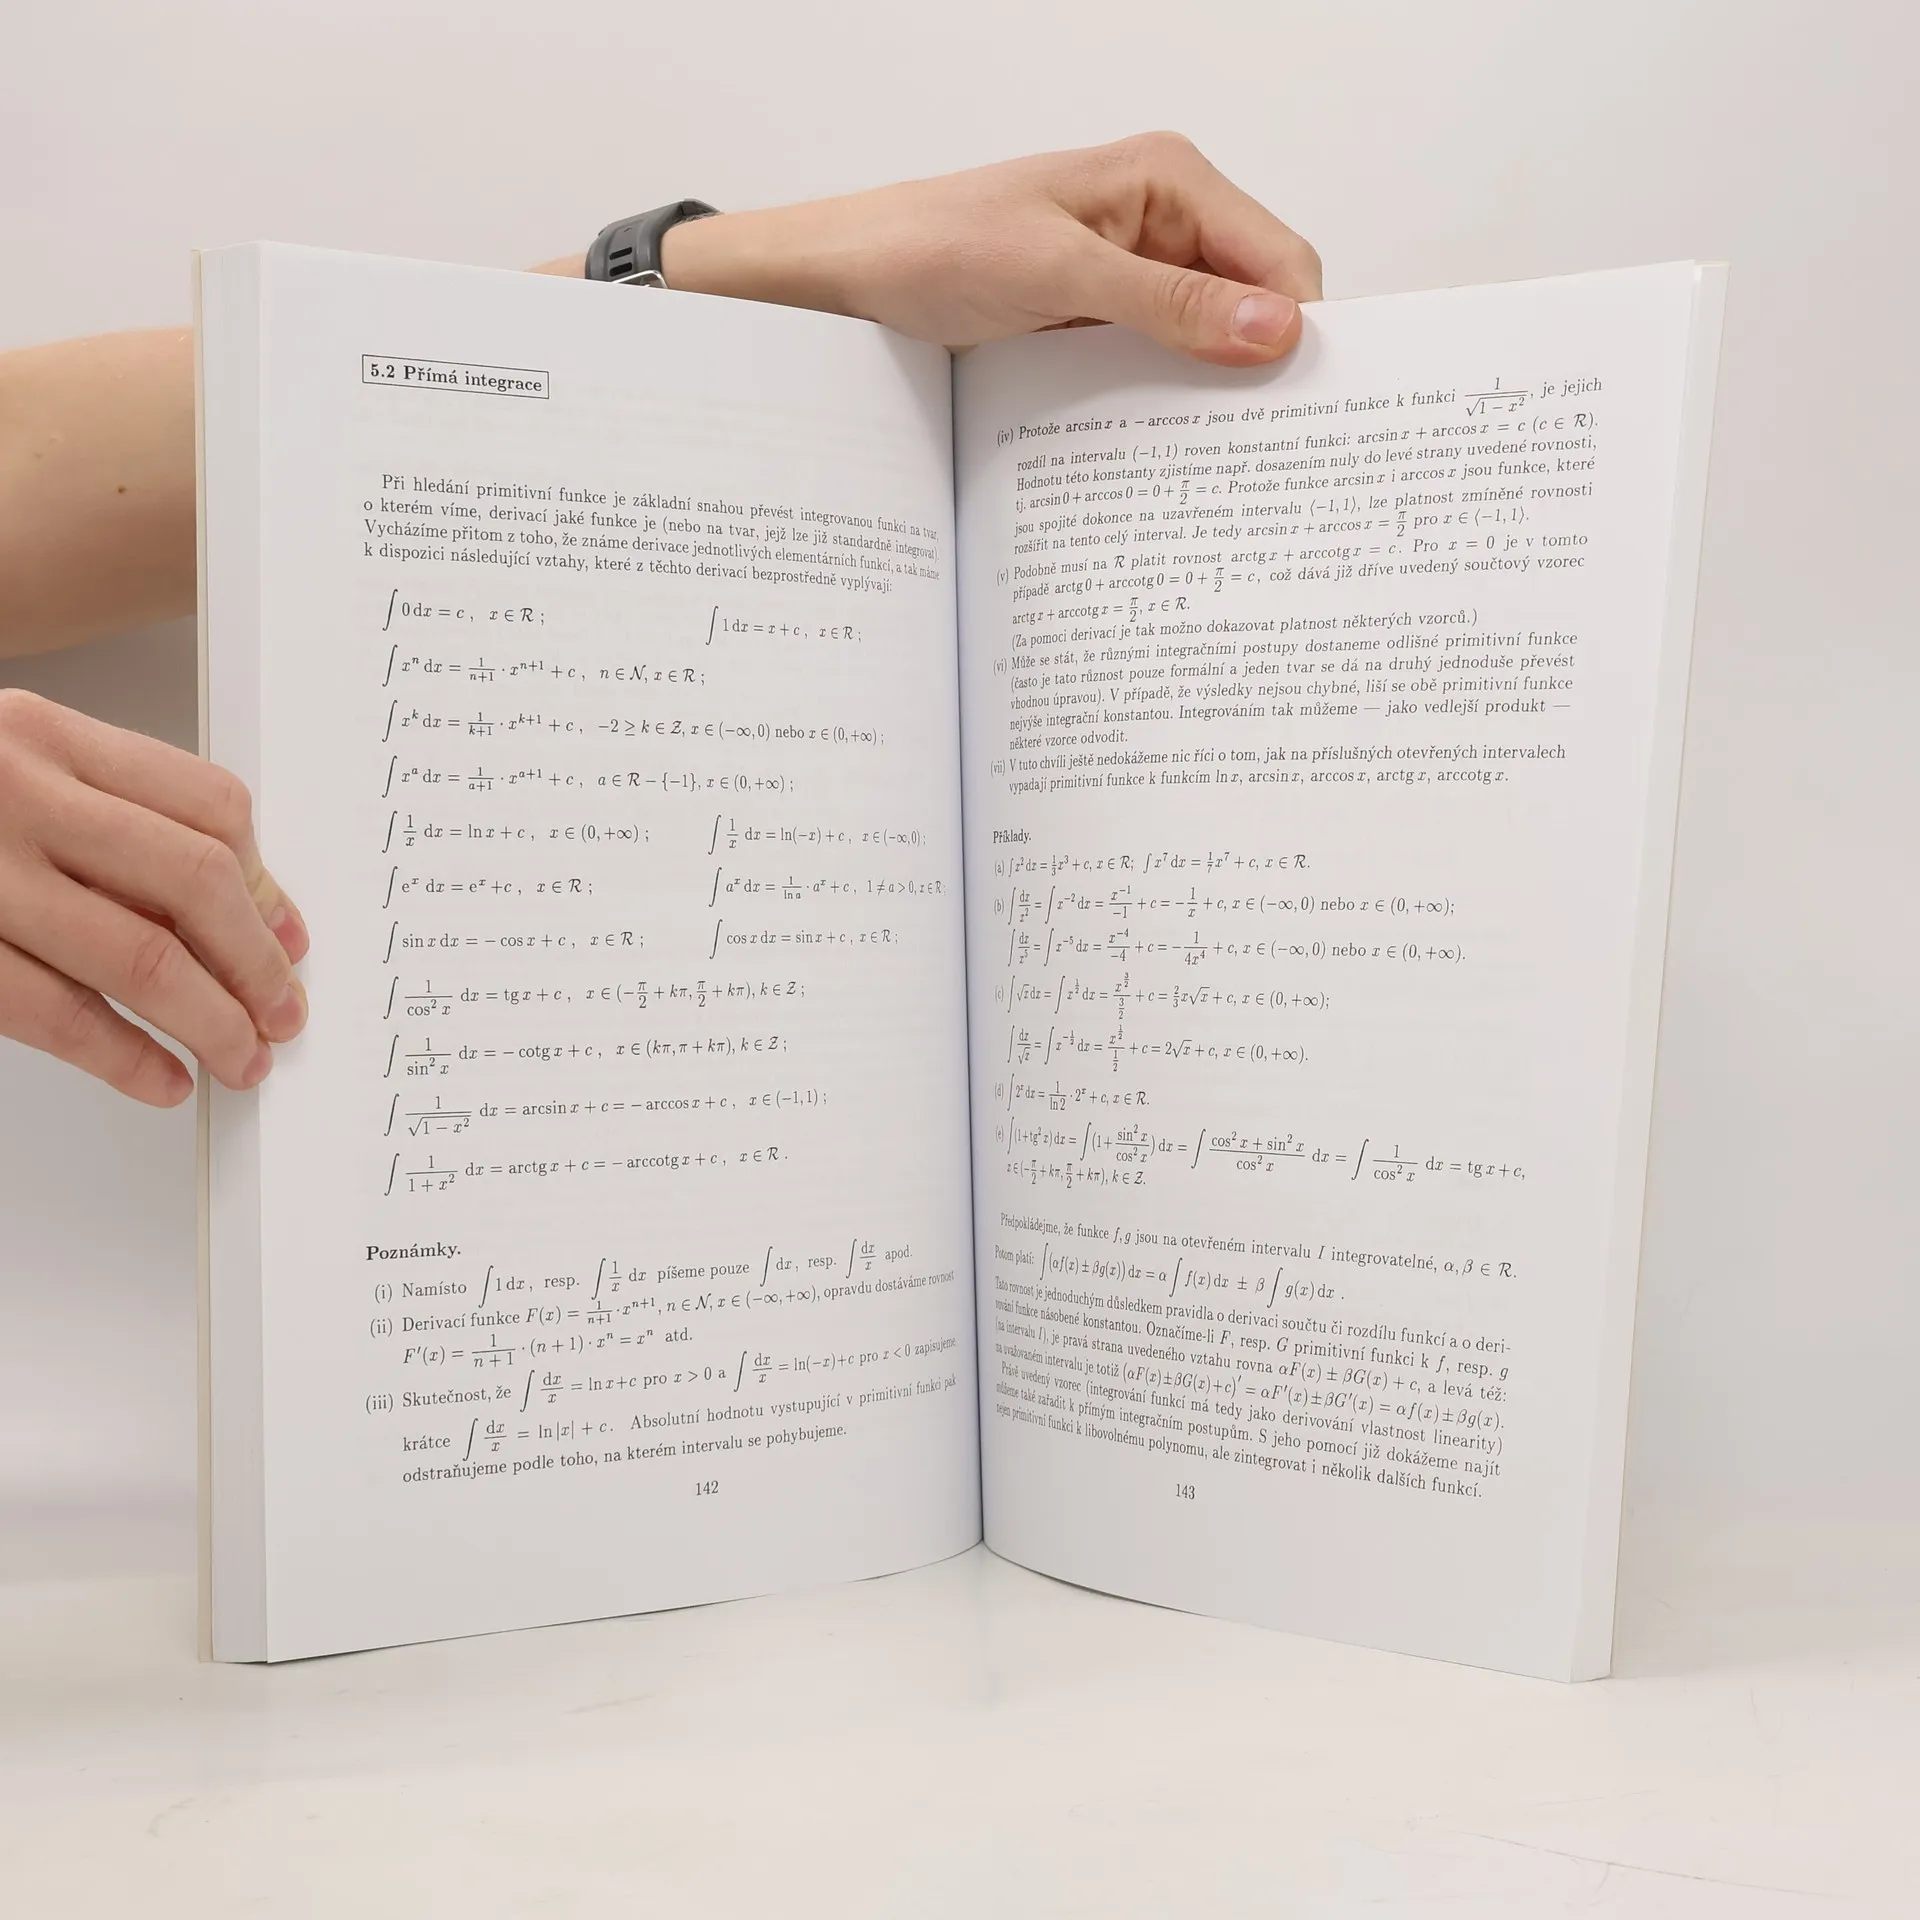 5.2 Přímá integrace
Při hledání primitivní funkce je základní snahou převést integrovanou funkci na tvar,
o kterém víme, derivací jaké funkce je (nebo na tvar, jejž lze již standardně integrovat).
Vycházíme přitom z toho, že známe derivace jednotlivých elementárních funkcí, a tak máme
k dispozici následující vztahy, které z těchto derivací bezprostředně vyplývají:
∫ 0 dx = c , x ∈ R ; ∫ 1 dx = x + c , x ∈ R ;
∫ xⁿ dx = 1/(n+1) · xⁿ⁺¹ + c , n ∈ N, x ∈ R ;
∫ x^k dx = 1/(k+1) · x^(k+1) + c , −2 ≥ k ∈ Z, x ∈ (−∞, 0) nebo x ∈ (0, +∞) ;
∫ x^a dx = 1/(a+1) · x^(a+1) + c , a ∈ R − {−1}, x ∈ (0, +∞) ;
∫ 1/x dx = ln x + c , x ∈ (0, +∞) ; ∫ 1/x dx = ln(−x) + c , x ∈ (−∞, 0) ;
∫ e^x dx = e^x + c , x ∈ R ; ∫ a^x dx = 1/(ln a) · a^x + c , 1 ≠ a > 0, x ∈ R ;
∫ sin x dx = − cos x + c , x ∈ R ; ∫ cos x dx = sin x + c , x ∈ R ;
∫ 1/(cos² x) dx = tg x + c , x ∈ (−π/2 + kπ, π/2 + kπ), k ∈ Z ;
∫ 1/(sin² x) dx = − cotg x + c , x ∈ (kπ, π + kπ), k ∈ Z ;
∫ 1/√(1 − x²) dx = arcsin x + c = − arccos x + c , x ∈ (−1, 1) ;
∫ 1/(1 + x²) dx = arctg x + c = − arccotg x + c , x ∈ R .
Poznámky.
(i) Namísto ∫ 1 dx , resp. ∫ 1/x dx píšeme pouze ∫ dx , resp. ∫ dx/x apod.
(ii) Derivací funkce F(x) = 1/(n+1) · xⁿ⁺¹, n ∈ N, x ∈ (−∞, +∞), opravdu dostáváme rovnost
F′(x) = 1/(n + 1) · (n + 1) · xⁿ = xⁿ atd.
(iii) Skutečnost, že ∫ dx/x = ln x + c pro x > 0 a ∫ dx/x = ln(−x) + c pro x < 0 zapisujeme
krátce ∫ dx/x = ln |x| + c. Absolutní hodnotu vystupující v primitivní funkci pak
odstraňujeme podle toho, na kterém intervalu se pohybujeme.
142
(iv) Protože arcsin x a − arccos x jsou dvě primitivní funkce k funkci 1/√(1 − x²), je jejich
rozdíl na intervalu (−1, 1) roven konstantní funkci: arcsin x + arccos x = c (c ∈ R).
Hodnotu této konstanty zjistíme např. dosazením nuly do levé strany uvedené rovnosti,
tj. arcsin 0 + arccos 0 = 0 + π/2 = c. Protože funkce arcsin x i arccos x jsou funkce, které
jsou spojité dokonce na uzavřeném intervalu ⟨−1, 1⟩, lze platnost zmíněné rovnosti
rozšířit na tento celý interval. Je tedy arcsin x + arccos x = π/2 pro x ∈ ⟨−1, 1⟩.
(v) Podobně musí na R platit rovnost arctg x + arccotg x = c. Pro x = 0 je v tomto
případě arctg 0 + arccotg 0 = 0 + π/2 = c, což dává již dříve uvedený součtový vzorec
arctg x + arccotg x = π/2, x ∈ R.
(Za pomoci derivací je tak možno dokazovat platnost některých vzorců.)
(vi) Může se stát, že různými integračními postupy dostaneme odlišné primitivní funkce
(často je tato různost pouze formální a jeden tvar se dá na druhý jednoduše převést
vhodnou úpravou). V případě, že výsledky nejsou chybné, liší se obě primitivní funkce
nejvýše integrační konstantou. Integrováním tak můžeme — jako vedlejší produkt —
některé vzorce odvodit.
(vii) V tuto chvíli ještě nedokážeme nic říci o tom, jak na příslušných otevřených intervalech
vypadají primitivní funkce k funkcím ln x, arcsin x, arccos x, arctg x, arccotg x.
Příklady.
(a) ∫ x² dx = 1/3 x³ + c, x ∈ R; ∫ x⁷ dx = 1/7 x⁷ + c, x ∈ R.
(b) ∫ dx/x² = ∫ x⁻² dx = x⁻¹/−1 + c = − 1/x + c, x ∈ (−∞, 0) nebo x ∈ (0, +∞);
∫ dx/x⁵ = ∫ x⁻⁵ dx = x⁻⁴/−4 + c = − 1/(4x⁴) + c, x ∈ (−∞, 0) nebo x ∈ (0, +∞).
(c) ∫ √x dx = ∫ x^(1/2) dx = x^(3/2)/(3/2) + c = 2/3 x√x + c, x ∈ (0, +∞);
∫ dx/√x = ∫ x^(−1/2) dx = x^(1/2)/(1/2) + c = 2√x + c, x ∈ (0, +∞).
(d) ∫ 2^x dx = 1/(ln 2) · 2^x + c, x ∈ R.
(e) ∫ (1 + tg² x) dx = ∫ (1 + sin² x/cos² x) dx = ∫ (cos² x + sin² x)/(cos² x) dx = ∫ 1/(cos² x) dx = tg x + c,
x ∈ (−π/2 + kπ, π/2 + kπ), k ∈ Z.
Předpokládejme, že funkce f, g jsou na otevřeném intervalu I integrovatelné, α, β ∈ R.
Potom platí: ∫ (αf(x) ± βg(x)) dx = α ∫ f(x) dx ± β ∫ g(x) dx .
Tato rovnost je jednoduchým důsledkem pravidla o derivaci součtu či rozdílu funkcí a o deri-
vování funkce násobené konstantou. Označíme-li F, resp. G primitivní funkci k f, resp. g
(na intervalu I), je pravá strana uvedeného vztahu rovna αF(x) ± βG(x) + c, a levá též:
na uvažovaném intervalu je totiž (αF(x) ± βG(x) + c)′ = αF′(x) ± βG′(x) = αf(x) ± βg(x).
Právě uvedený vzorec (integrování funkcí má tedy jako derivování vlastnost linearity)
můžeme také zařadit k přímým integračním postupům. S jeho pomocí již dokážeme najít
nejen primitivní funkci k libovolnému polynomu, ale zintegrovat i několik dalších funkcí.
143